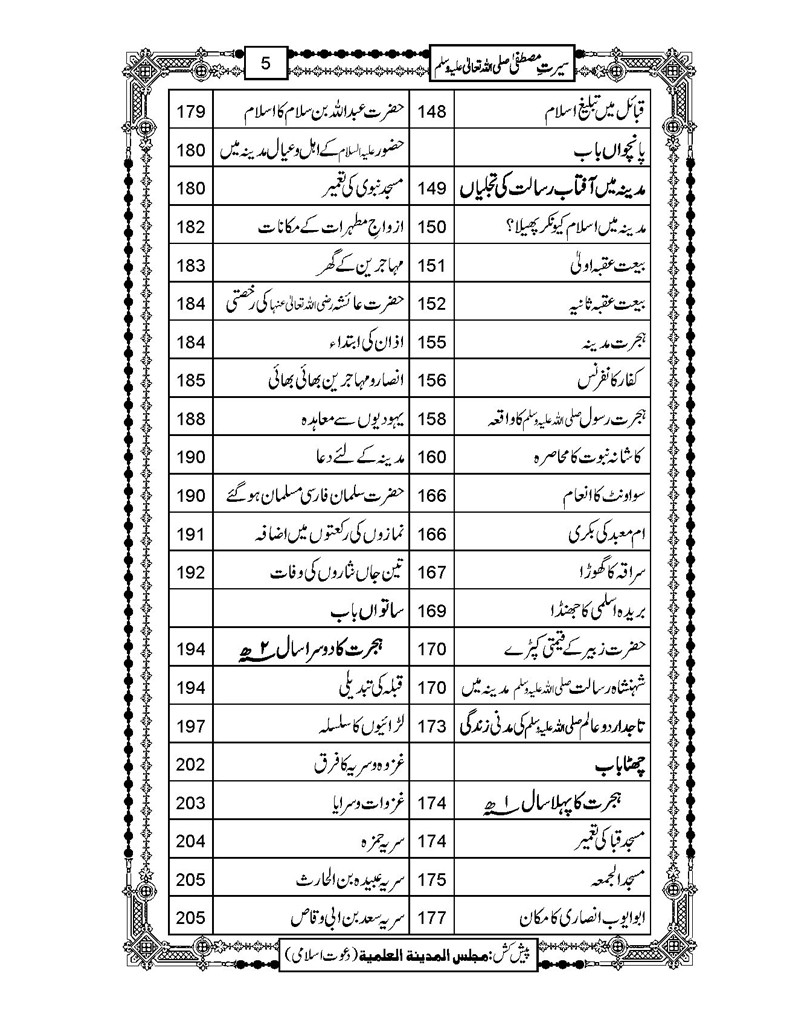 سیرتِ مصطفیٰ صلی اللہ تعالیٰ علیہ وسلم
5
قبائل میں تبلیغ اسلام 148
پانچواں باب
مدینہ میں آفتاب رسالت کی تجلیاں 149
مدینہ میں اسلام کیونکر پھیلا؟ 150
بیعت عقبہ اولیٰ 151
بیعت عقبہ ثانیہ 152
ہجرت مدینہ 155
کفار کانفرنس 156
ہجرت رسول صلی اللہ علیہ وسلم کا واقعہ 158
کاشانہ نبوت کا محاصرہ 160
سو اونٹ کا انعام 166
ام معبد کی بکری 166
سراقہ کا گھوڑا 167
بریدہ اسلمی کا جھنڈا 169
حضرت زبیر کے قیمتی کپڑے 170
شہنشاہ رسالت صلی اللہ علیہ وسلم مدینہ میں 170
تاجدار دو عالم صلی اللہ علیہ وسلم کی مدنی زندگی 173
چھٹا باب
ہجرت کا پہلا سال ۱ھ 174
مسجد قبا کی تعمیر 174
مسجد الجمعہ 175
ابو ایوب انصاری کا مکان 177
حضرت عبداللہ بن سلام کا اسلام 179
حضور علیہ السلام کے اہل و عیال مدینہ میں 180
مسجد نبوی کی تعمیر 180
ازواجِ مطہرات کے مکانات 182
مہاجرین کے گھر 183
حضرت عائشہ رضی اللہ تعالیٰ عنہا کی رخصتی 184
اذان کی ابتداء 184
انصار و مہاجرین بھائی بھائی 185
یہودیوں سے معاہدہ 188
مدینہ کے لئے دعا 190
حضرت سلمان فارسی مسلمان ہو گئے 190
نمازوں کی رکعتوں میں اضافہ 191
تین جاں نثاروں کی وفات 192
ساتواں باب
ہجرت کا دوسرا سال ۲ھ 194
قبلہ کی تبدیلی 194
لڑائیوں کا سلسلہ 197
غزوہ و سریہ کا فرق 202
غزوات و سرایا 203
سریہ حمزہ 204
سریہ عبیدہ بن الحارث 205
سریہ سعد بن ابی وقاص 205
پیش کش: مجلس المدینة العلمیة (دعوت اسلامی)